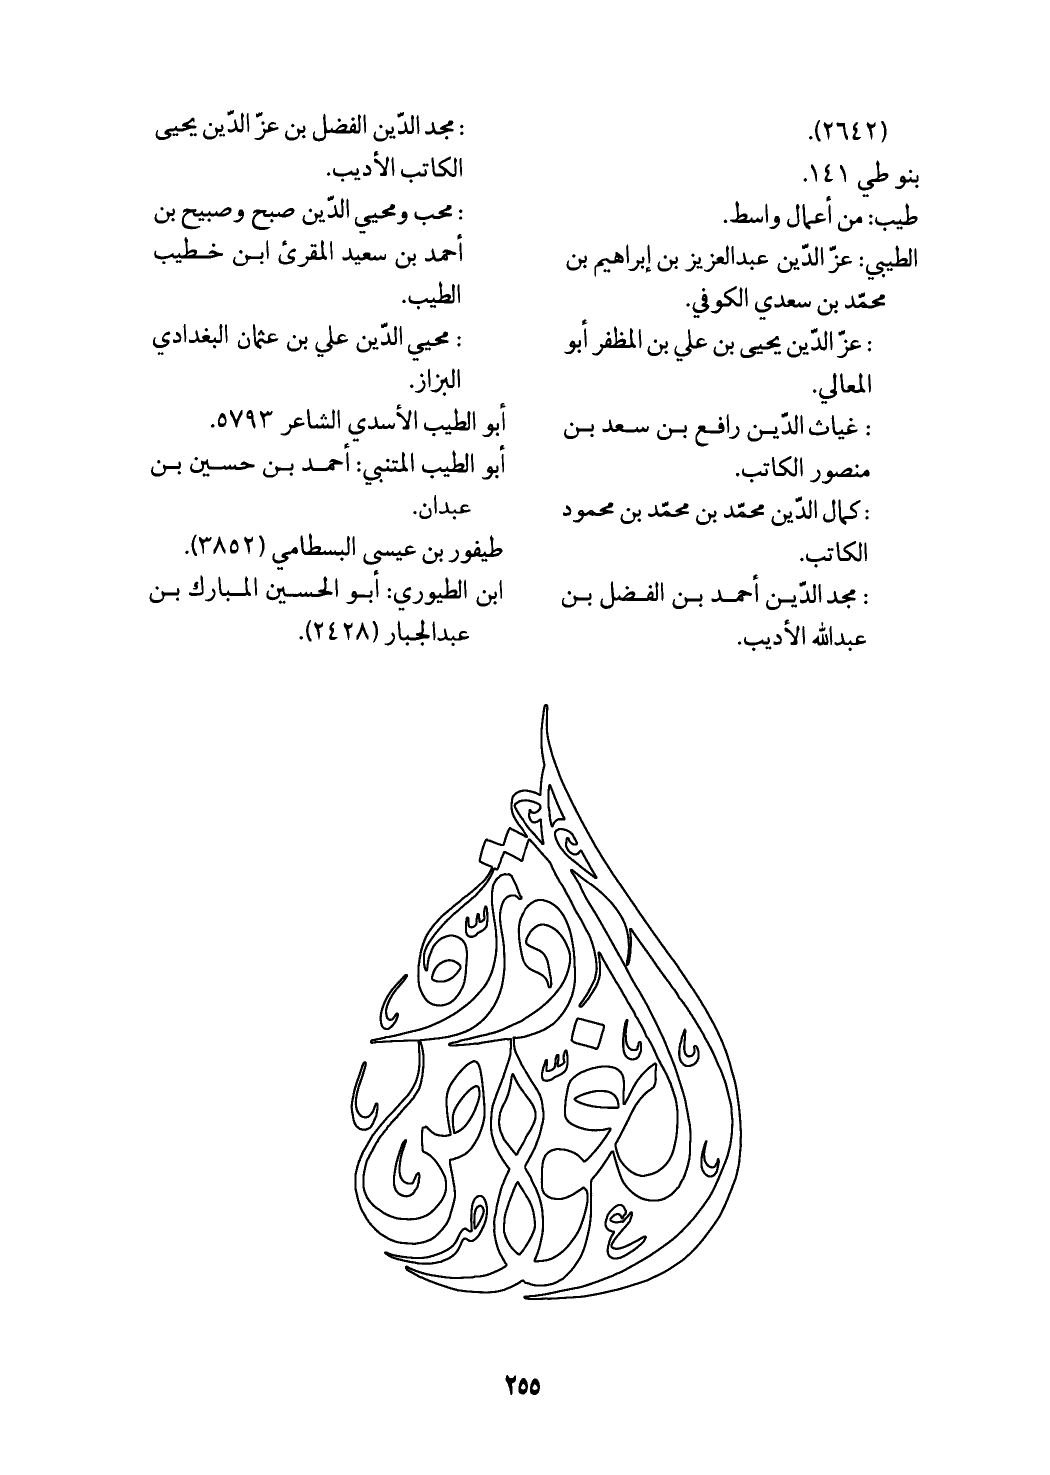 (٢٦٤٢).
بنو طي ١٤١.
طيب: من أعمال واسط.
الطيبي: عزّ الدّين عبدالعزيز بن إبراهيم بن
محمّد بن سعدي الكوفي.
: عزّ الدّين يحيى بن علي بن المظفر أبو
المعالي.
: غياث الدّيـن رافـع بـن سـعد بـن
منصور الكاتب.
: كمال الدّين محمّد بن محمّد بن محمود
الكاتب.
: مجد الدّيـن أحمـد بـن الفـضل بـن
عبدالله الأديب.
: مجد الدّين الفضل بن عزّ الدّين يحيى
الكاتب الأديب.
: محب ومحيي الدّين صبح وصبيح بن
أحمد بن سعيد المقرئ ابـن خـطيب
الطيب.
: محيي الدّين علي بن عثمان البغدادي
البزاز.
أبو الطيب الأسدي الشاعر ٥٧٩٣.
أبو الطيب المتنبي: أحمـد بـن حسـين بـن
عبدان.
طيفور بن عيسى البسطامي (٣٨٥٢).
ابن الطيوري: أبـو الحسـين المـبارك بـن
عبدالجبار (٢٤٢٨).
درّة الغوّاص
٢٥٥